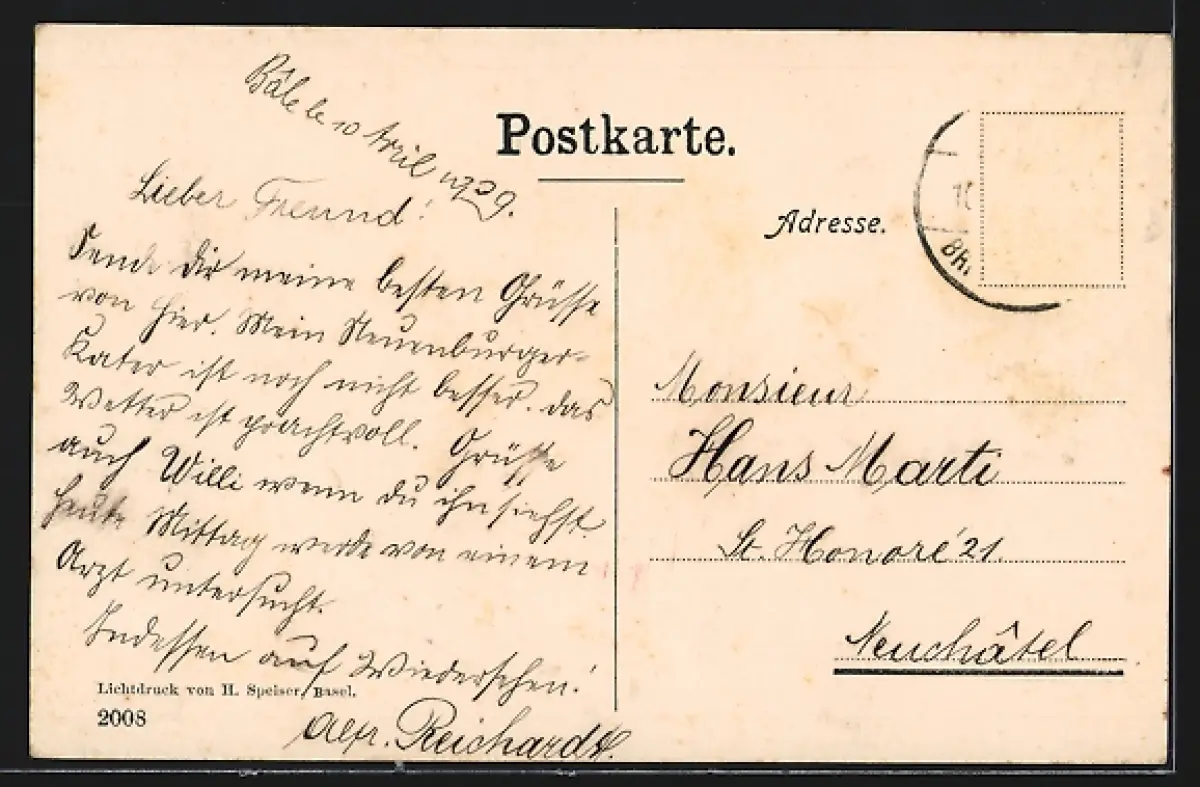 Bâle le 10 Avril 1909.
Postkarte.
Lieber Freund!
Sende dir meine besten Grüsse
von hier. Mein Neuenburger-
Kater ist noch nicht besser. das
Wetter ist prachtvoll. Grüsse
auch Willi wenn du ihn siehst.
heute Mittag werde von einem
Arzt untersucht.
Indessen auf Wiedersehen!
Alfr. Reichardt.
Lichtdruck von H. Speiser, Basel.
2008
Adresse.
Monsieur
Hans Marti
St. Honoré 21.
Neuchâtel